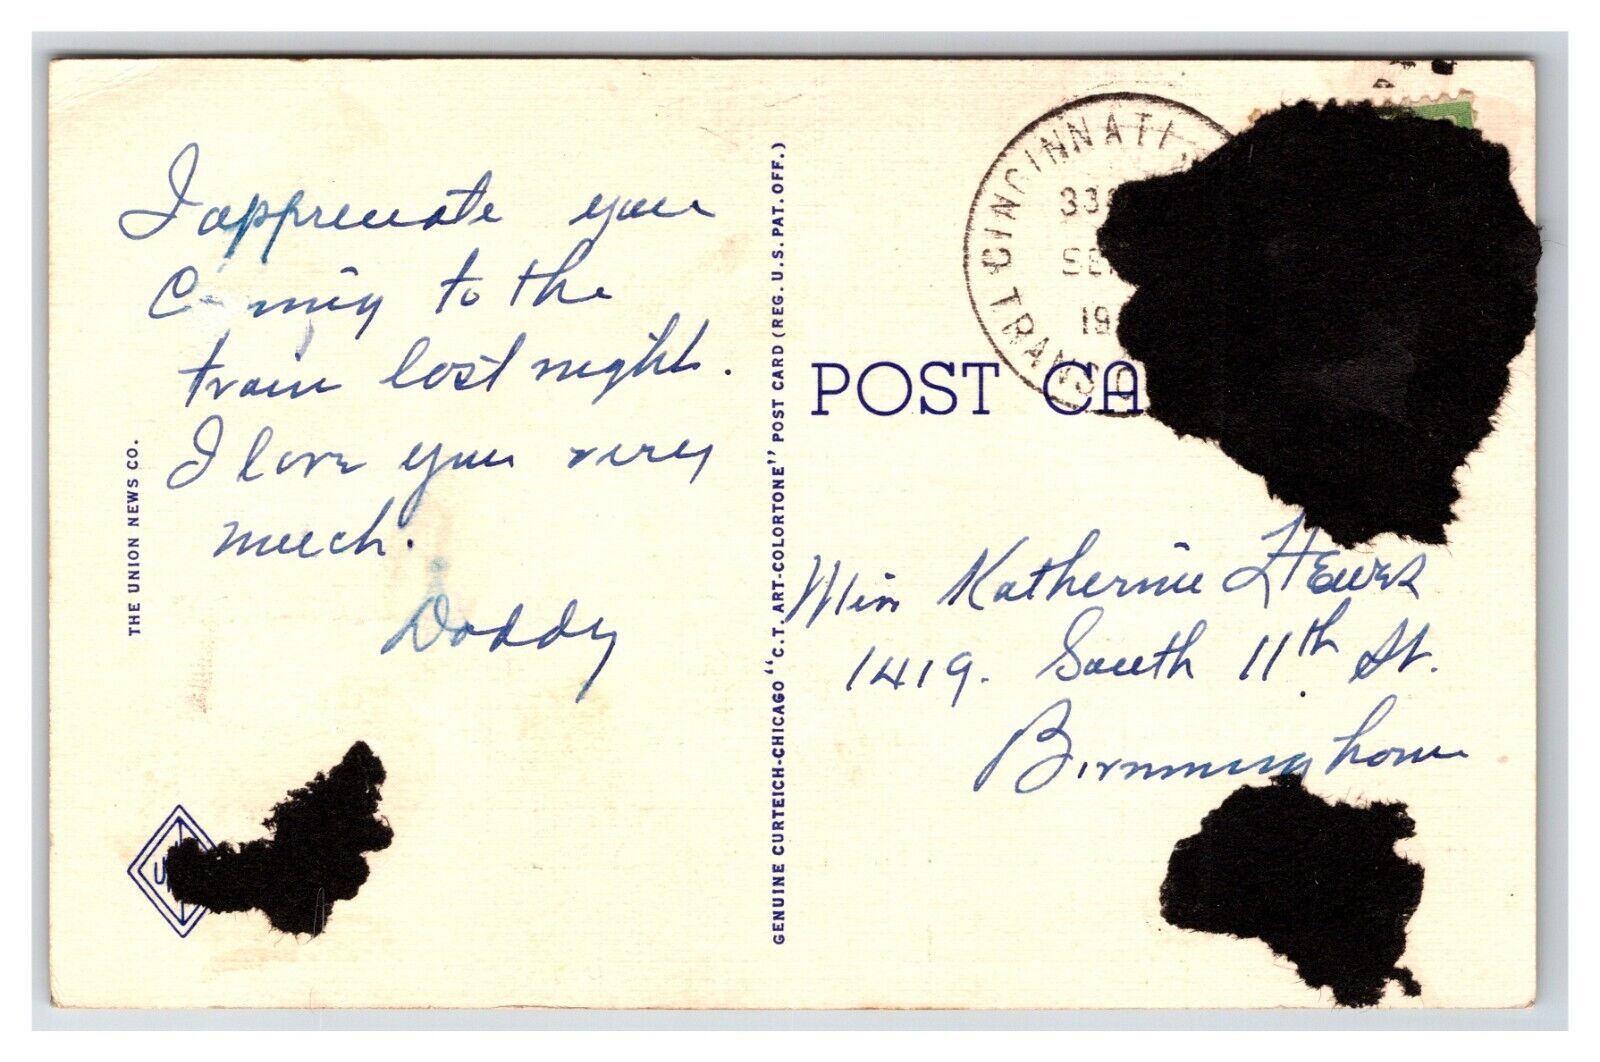 I appreciate you
Coming to the
train last night.
I love you very
much.
Daddy
THE UNION NEWS CO.
GENUINE CURTEICH-CHICAGO "C.T. ART-COLORTONE" POST CARD (REG. U.S. PAT. OFF.)
CINCINNATI
33
SE
19
TRANS
POST CA
Miss Katherine Hewes
1419. South 11th St.
Birmingham